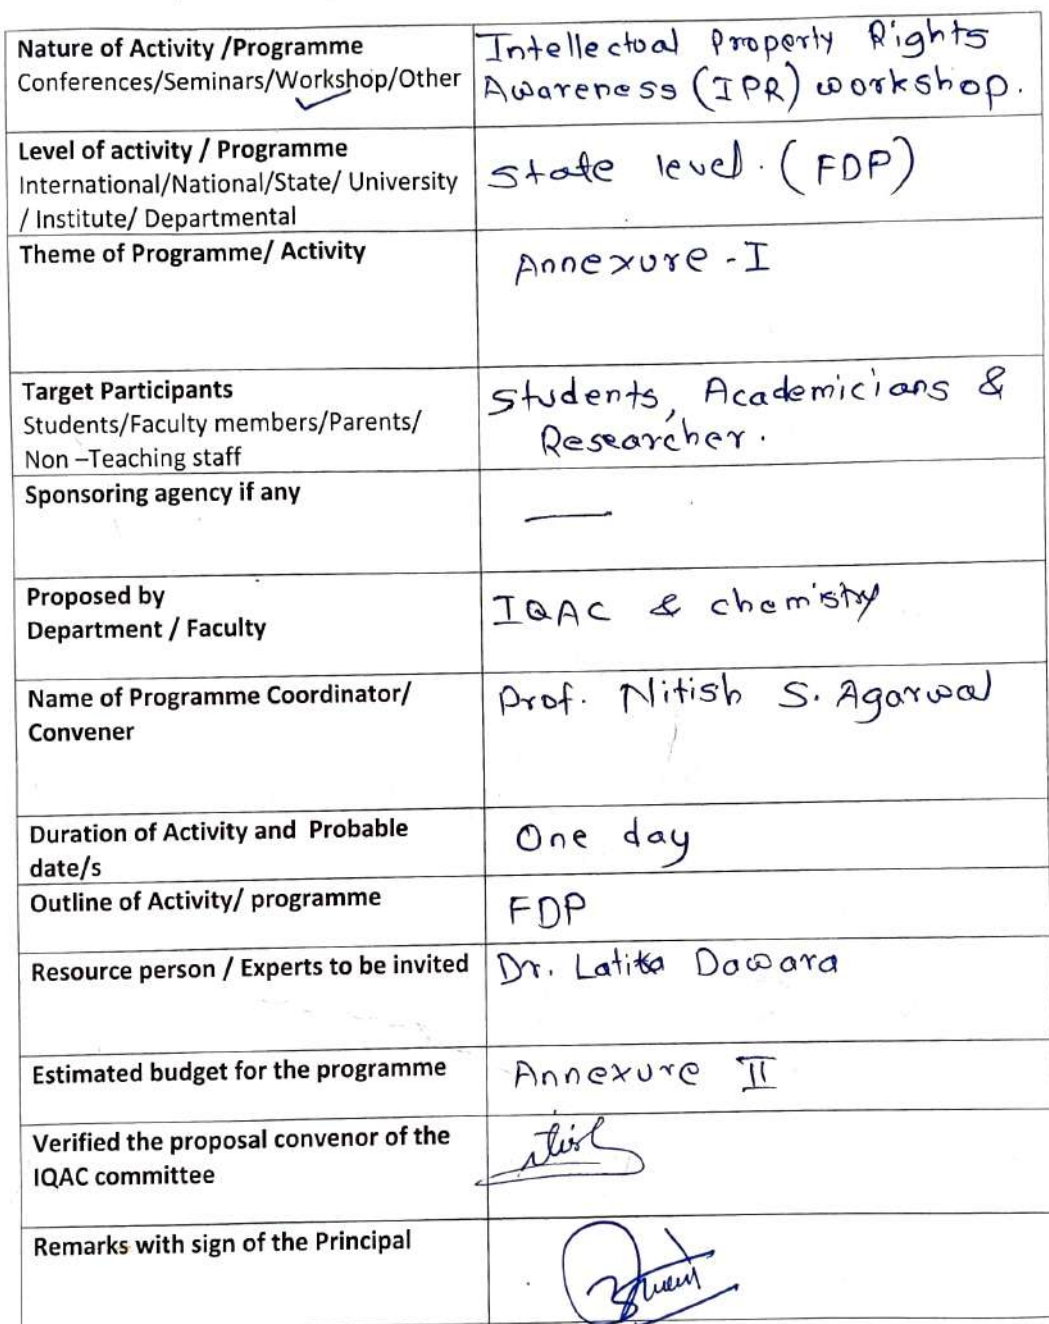 Nature of Activity /Programme
Conferences/Seminars/Workshop/Other
Intellectual Property Rights
Awareness (IPR) workshop.
Level of activity / Programme
International/National/State/ University
/ Institute/ Departmental
State level. (FDP)
Theme of Programme/ Activity
Annexure - I
Target Participants
Students/Faculty members/Parents/
Non –Teaching staff
Students, Academicians &
Researcher.
Sponsoring agency if any
—
Proposed by
Department / Faculty
IQAC & chemistry
Name of Programme Coordinator/
Convener
Prof. Nitish S. Agarwal
Duration of Activity and Probable
date/s
One day
Outline of Activity/ programme
FDP
Resource person / Experts to be invited
Dr. Latika Dawara
Estimated budget for the programme
Annexure II
Verified the proposal convenor of the
IQAC committee
Remarks with sign of the Principal